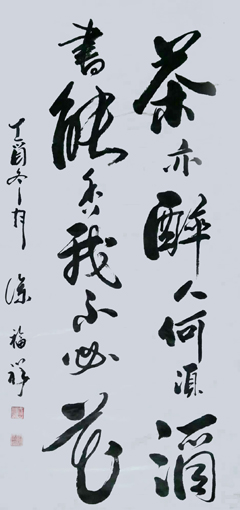 茶亦醉人何須酒
書能香我不必花
丁酉冬月 徐福祥